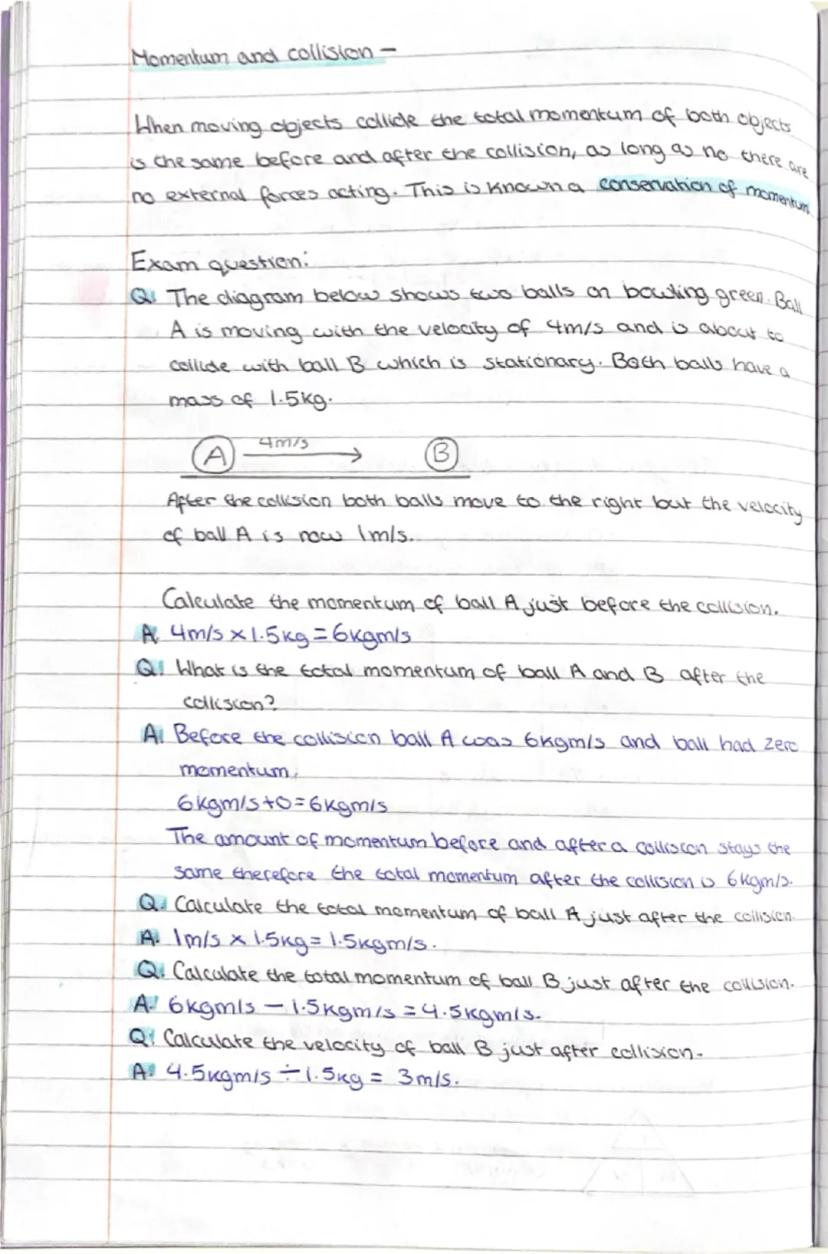 Momentum and collision –
When moving objects collide the total momentum of both objects
is the same before and after the collision, as long as no there are
no external forces acting. This is known a conservation of momentum
Exam question:
Q. The diagram below shows two balls on bowling green. Ball
A is moving with the velocity of 4m/s and is about to
collide with ball B which is stationary. Both balls have a
mass of 1.5kg.
A 4m/s B
After the collision both balls move to the right but the velocity
of ball A is now 1m/s.
Calculate the momentum of ball A just before the collision.
A. 4m/s × 1.5kg = 6kgm/s
Q. What is the total momentum of ball A and B after the
collision?
A. Before the collision ball A was 6kgm/s and ball had zero
momentum.
6kgm/s + 0 = 6kgm/s
The amount of momentum before and after a collision stays the
same therefore the total momentum after the collision is 6kgm/s.
Q. Calculate the total momentum of ball A just after the collision.
A. 1m/s × 1.5kg = 1.5kgm/s.
Q. Calculate the total momentum of ball B just after the collision.
A. 6kgm/s – 1.5kgm/s = 4.5kgm/s.
Q. Calculate the velocity of ball B just after collision.
A. 4.5kgm/s ÷ 1.5kg = 3m/s.